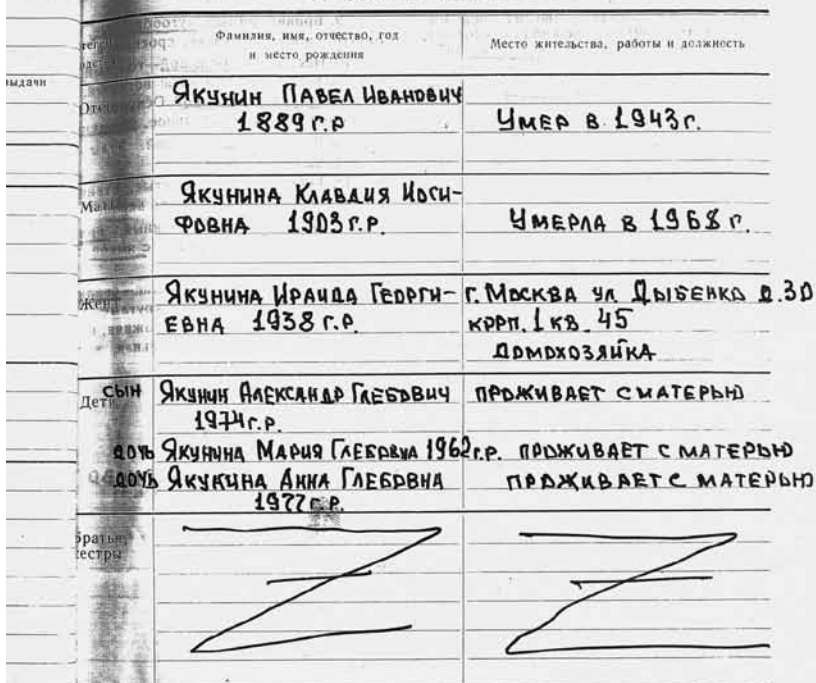 Фамилия, имя, отчество, год
и место рождения
Место жительства, работы и должность
выдачи
Отец
Якунин Павел Иванович
1889 г.р
Умер в 1943 г.
Мать
Якунина Клавдия Иоси-
фовна 1903 г.р.
Умерла в 1968 г.
Жена
Якунина Ираида Георги-
евна 1938 г.р.
г. Москва ул Дыбенко д.30
корп. 1 кв. 45
домохозяйка
Дети
сын Якунин Александр Глебович
1974 г.р.
проживает с матерью
дочь Якунина Мария Глебовна 1962 г.р. проживает с матерью
дочь Якунина Анна Глебовна
1977 г.р.
проживает с матерью
братья,
сестры
Z
Z